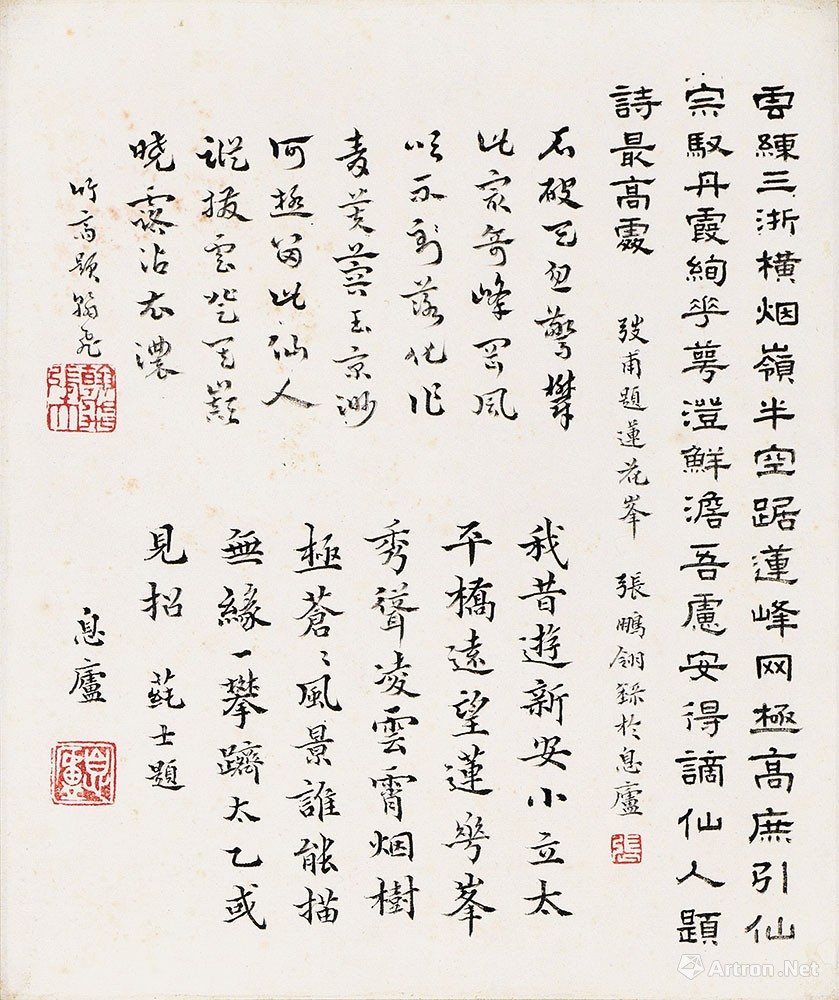 雲練三浙橫烟嶺半空踞蓮峰网極高庶引仙
宗馭丹霞絢琴萼澄鮮澹吾慮安得謫仙人題
詩最高處
弢甫題蓮花峯 張鵬翎錄於息廬
張
石破天忽驚攀
此宕奇峰罡風
吹不到落化作
青芙蓉玉京渺
何極留此仙人
蹤拔雲登天巔
曉露沾衣濃
竹高題 翰飛
我昔遊新安小立太
平橋遠望蓮華峯
秀聳凌雲霄烟樹
極蒼〻風景誰能描
無緣一攀躋太乙或
見招 蒓士題
息廬
Artron.Net